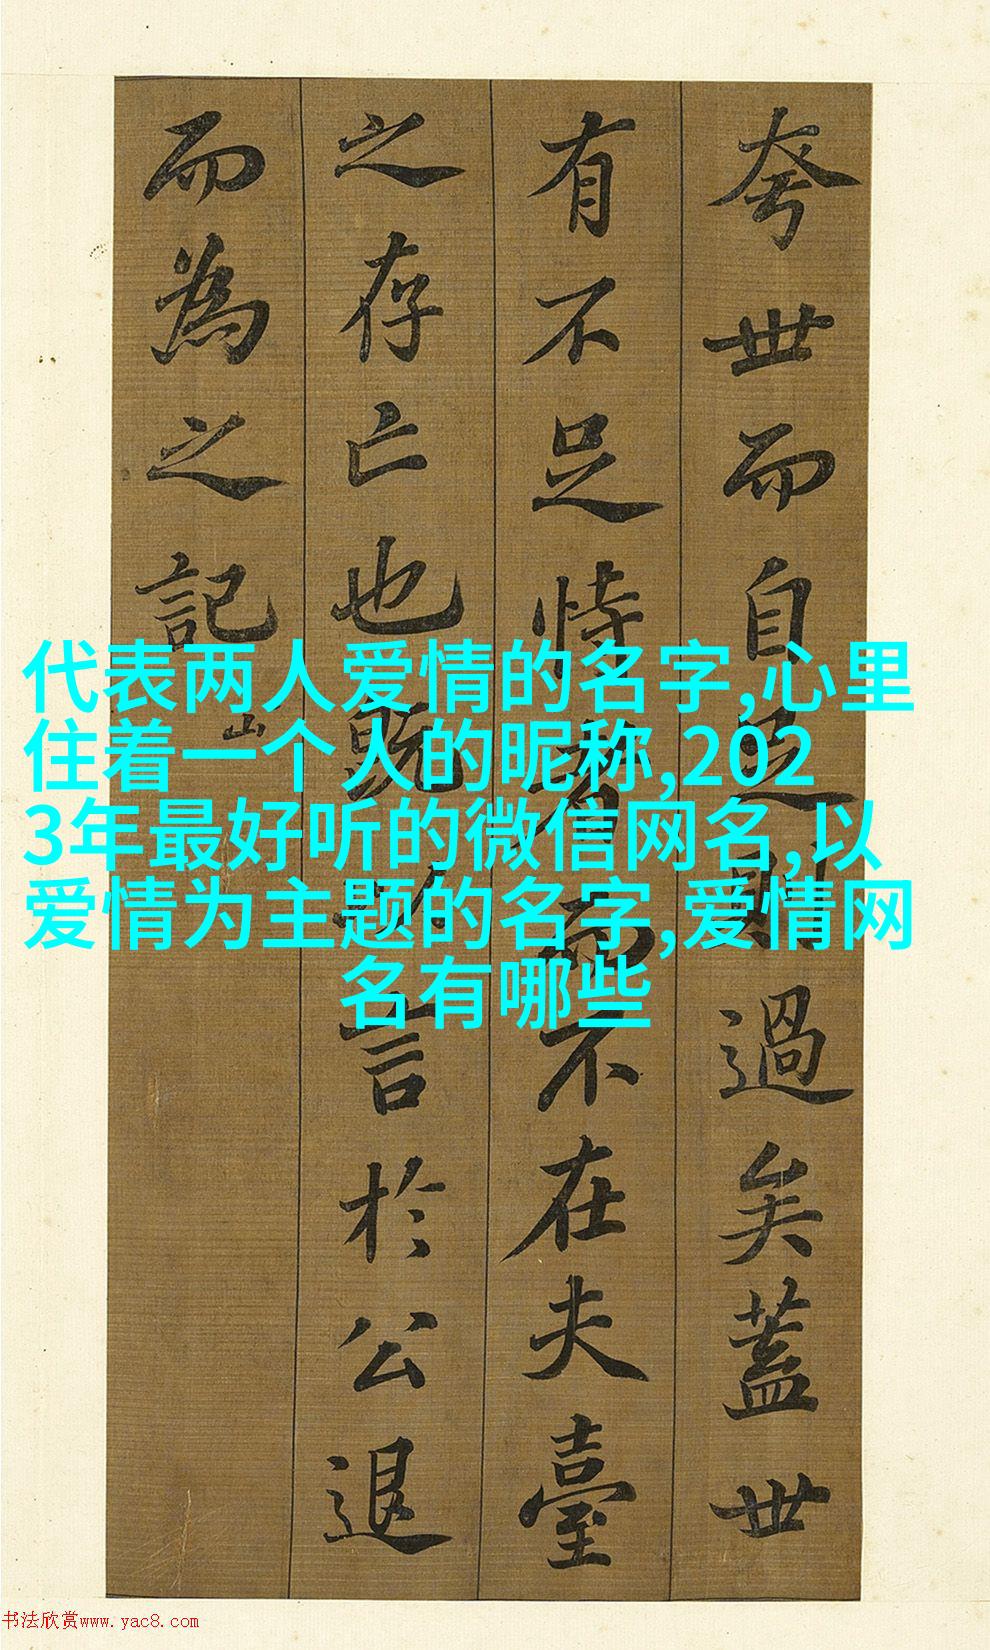 夸世而自足則過矣蓋世
有不足恃者而不在夫臺
之存亡也既以言於公退
而為之記
山
代表两人爱情的名字,心里
住着一个人的昵称,202
3年最好听的微信网名,以
爱情为主题的名字,爱情网
名有哪些
书法欣赏www.yac8.com